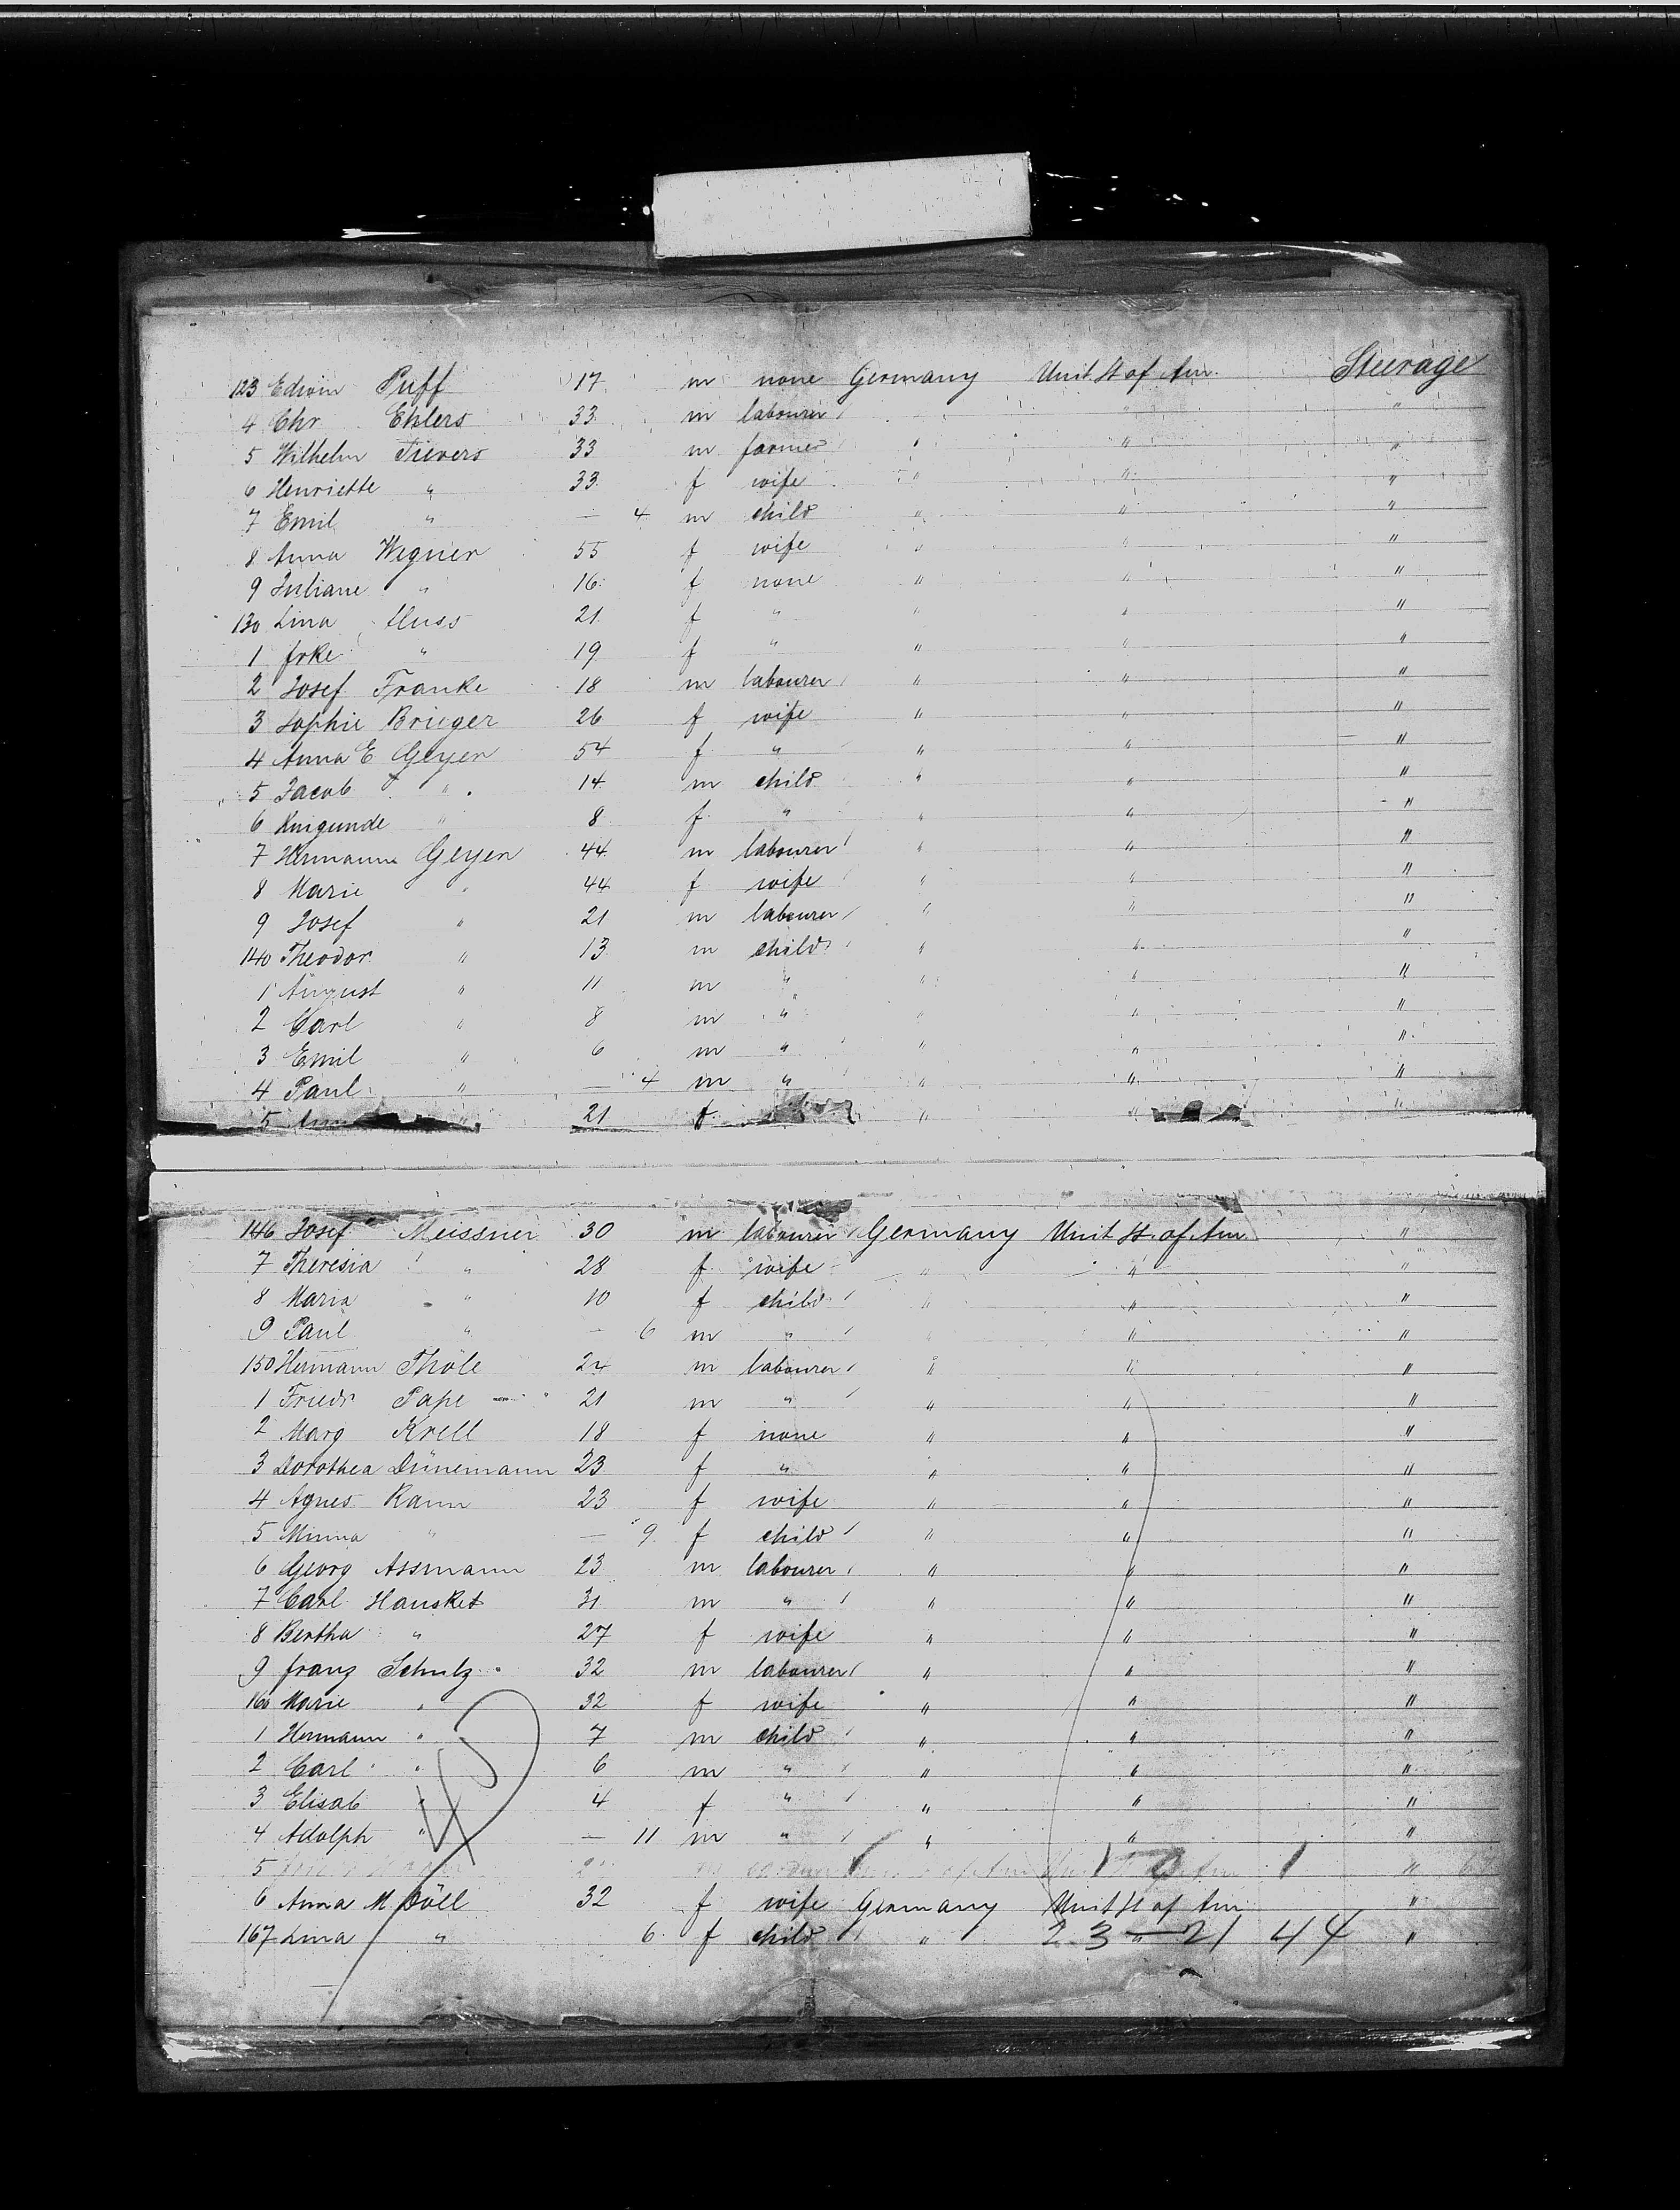 123 Edwin Puff 17 m none Germany Unit. St of Am. Steerage
4 Chr Ehlers 33 m labourer " "
5 Wilhelm Sievers 33 m farmer " " "
6 Henriette " 33 f wife " " "
7 Emil " — 4 m child " " "
8 Anna Wegner 55 f wife " " "
9 Juliane " 16 f none " " "
130 Lina Huss 21 f " " " "
1 " 19 f " " " "
2 Josef Franke 18 m labourer " " "
3 Sophie Brieger 26 f wife " " "
4 Anna E Geyer 54 f " " " "
5 Jacob " 14 m child " " "
6 Kunigunde " 8 f " " " "
7 Hermann Geyer 44 m labourer " " "
8 Marie " 44 f wife " " "
9 Josef " 21 m labourer " " "
140 Theodor " 13 m child " " "
1 August " 11 m " " " "
2 Carl " 8 m " " " "
3 Emil " 6 m " " " "
4 Paul " — 4 m " " " "
5 " 21 f " " "
146 Josef Meissner 30 m labourer Germany Unit St. of Am. "
7 Theresia " 28 f wife " " "
8 Maria " 10 f child " " "
9 Paul " — 6 m " " " "
150 Hermann Thöle 24 m labourer " " "
1 Friedr Pape 21 m " " " "
2 Marg Krell 18 f none " " "
3 Dorothea Dünemann 23 f " " " "
4 Agnes Rann 23 f wife " " "
5 Minna " — 9 f child " " "
6 Georg Assmann 23 m labourer " " "
7 Carl Hausket 31 m " " " "
8 Bertha " 27 f wife " " "
9 Franz Schulz 32 m labourer " " "
160 Marie " 32 f wife " " "
1 Hermann " 7 m child " " "
2 Carl " 6 m " " " "
3 Elisab " 4 f " " " "
4 Adolph " — 11 m " " " "
5 "
6 Anna M Döll 32 f wife Germany Unit St of Am "
167 Lina " 6 f child " " "
23—21 44